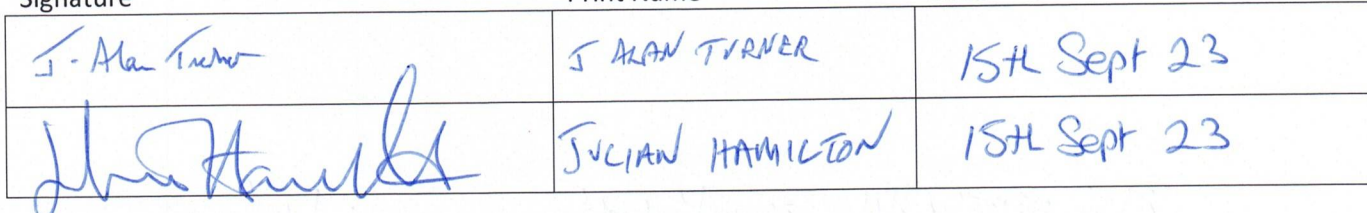 Signature Print Name
J - Alan Turner J ALAN TURNER 15th Sept 23
Julian Hamilton JULIAN HAMILTON 15th Sept 23